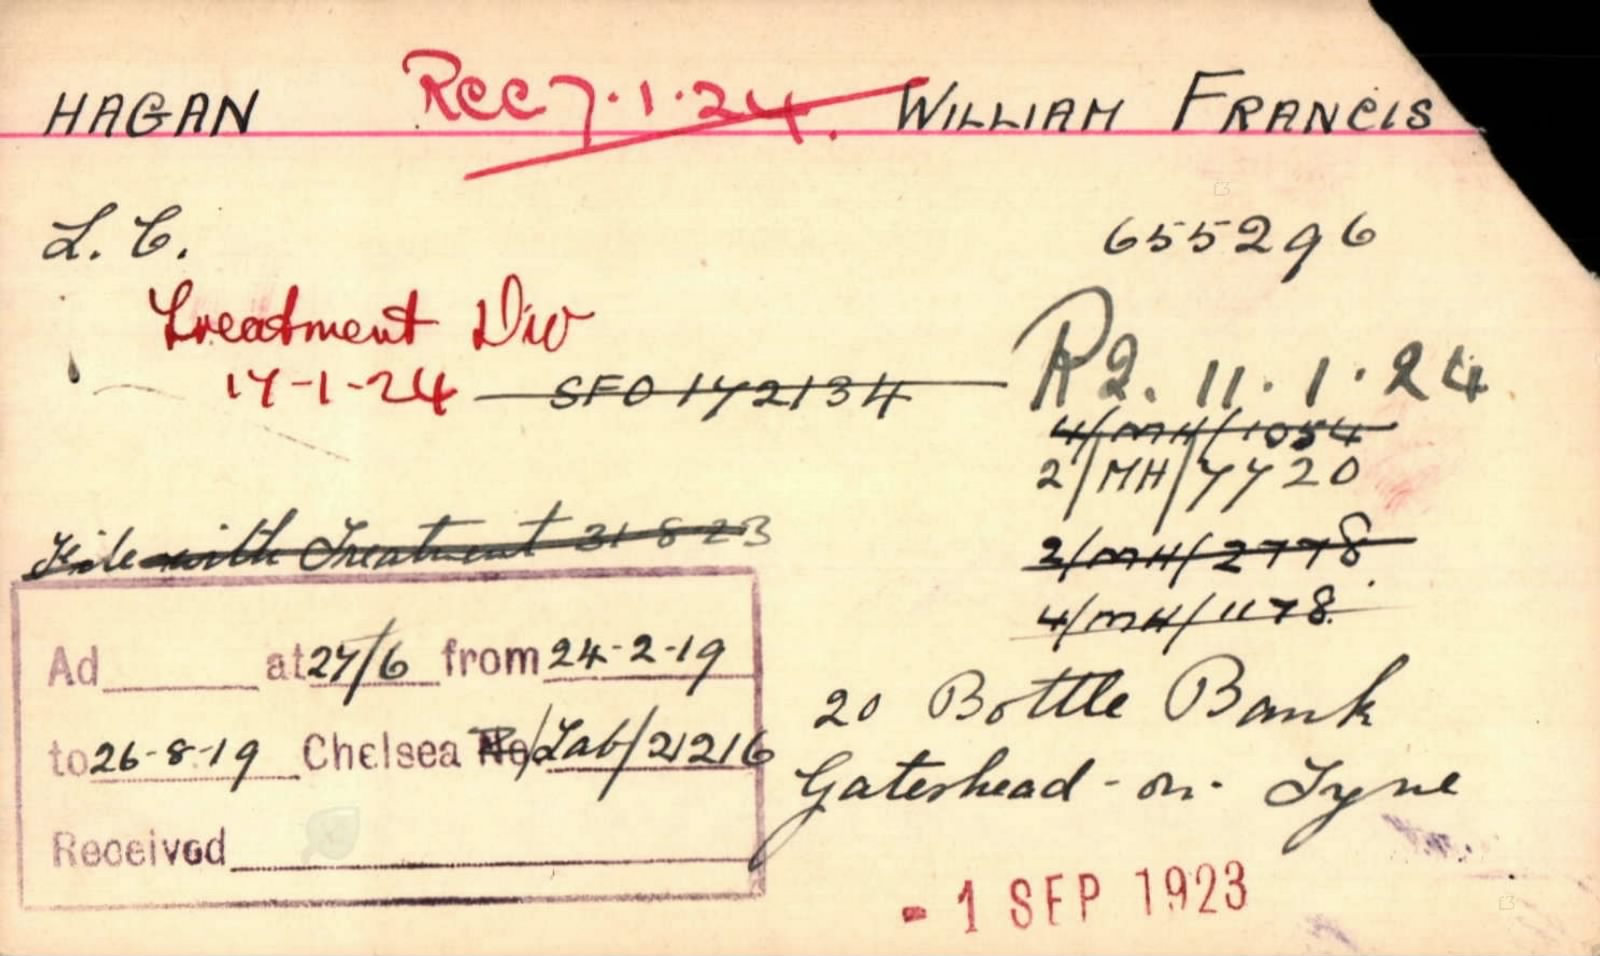 HAGAN Rec 7.1.24. WILLIAM FRANCIS
L. C. 655296
Treatment Div
17-1-24 SFO 172134 R2. 11.1.24
4/MH/1054
2/MH/7720
File with Treatment 31-8-23
2/MH/2778
4/MH/1178
Ad at 27/6 from 24-2-19
20 Bottle Bank
to 26-8-19 Chelsea No /Lab/21216
Gateshead-on-Tyne
Received
- 1 SEP 1923